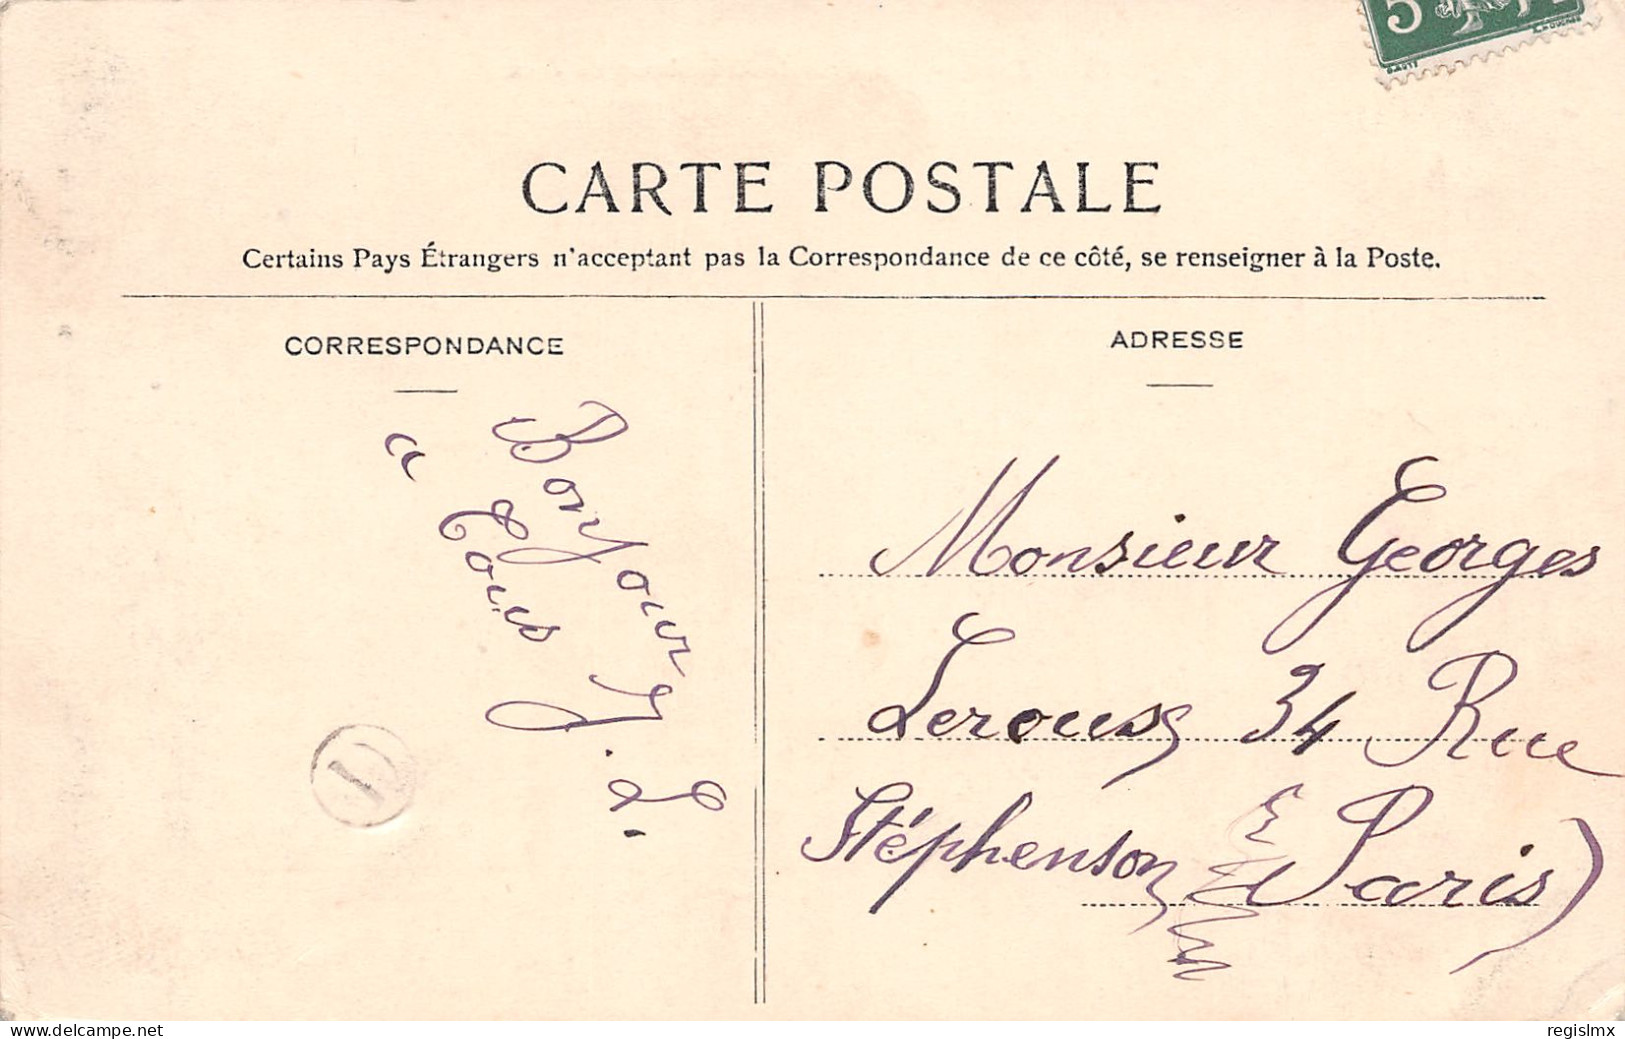 5
CARTE POSTALE
Certains Pays Étrangers n'acceptant pas la Correspondance de ce côté, se renseigner à la Poste.
CORRESPONDANCE
ADRESSE
Bonjour
a Tous
J. L.
Monsieur Georges
Leroux 34 Rue
Stéphenson
Paris
www.delcampe.net
regislmx